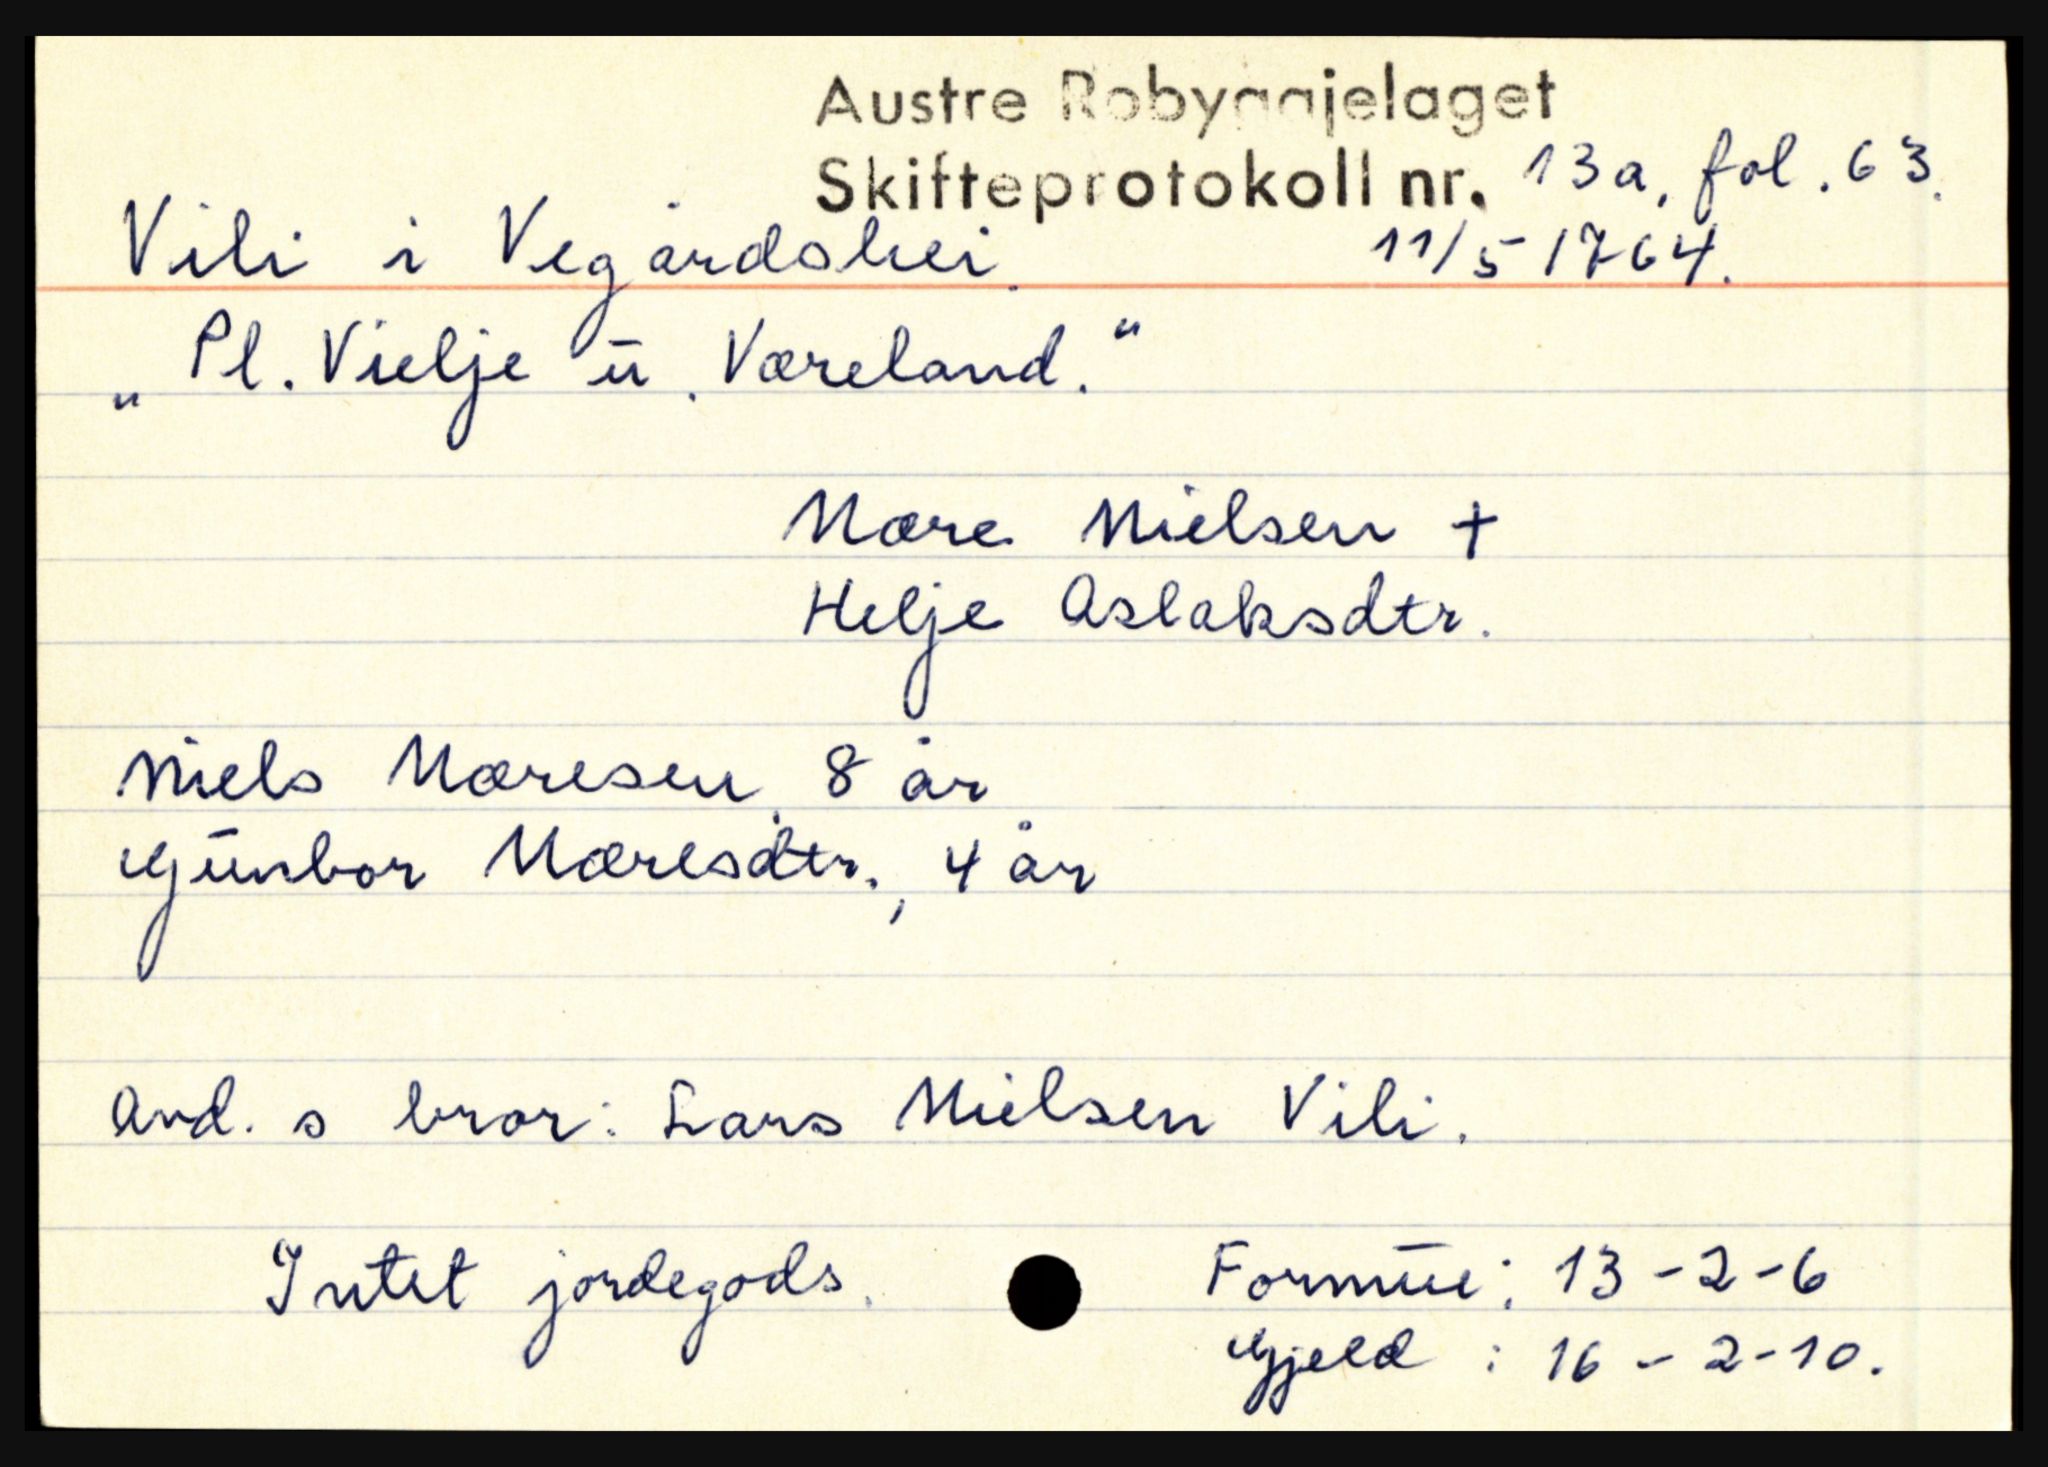 Austre Robyggjelaget
Skifteprotokoll nr. 13a, fol. 63.
Vili i Vegårdshei. 11/5 1764.
„ Pl. Vielje u. Væreland. “
Mære Nielsen +
Helje Aslaksdtr.
Niels Mæresen, 8 år
Gunbor Mæresdtr., 4 år
Avd. s bror: Lars Nielsen Vili.
Intet jordegods. Formue: 13 - 2 - 6
Gjeld : 16 - 2 - 10.